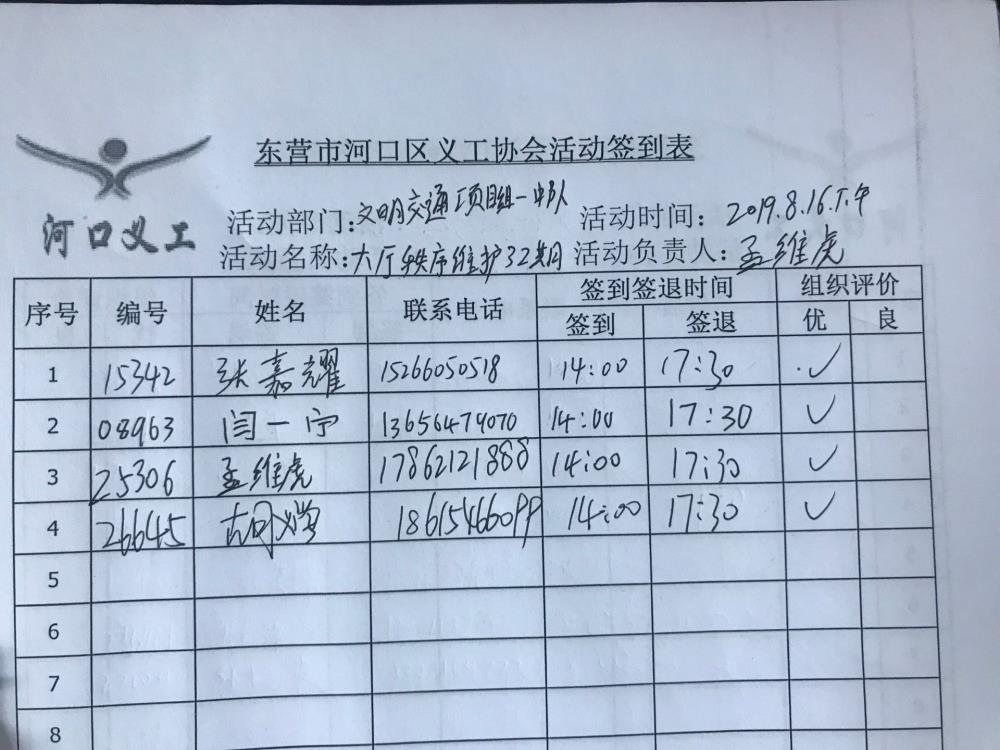 东营市河口区义工协会活动签到表
河口义工
活动部门:文明交通项目组一中队 活动时间: 2019.8.16.下午
活动名称:大厅秩序维护32期 活动负责人:孟维虎
序号 编号 姓名 联系电话 签到签退时间 组织评价
签到 签退 优 良
1 15342 张嘉耀 15266050518 14:00 17:30 ✓
2 08963 闫一宁 13656479070 14:00 17:30 ✓
3 25306 孟维虎 17862121888 14:00 17:30 ✓
4 26645 胡 18615466099 14:00 17:30 ✓
5
6
7
8